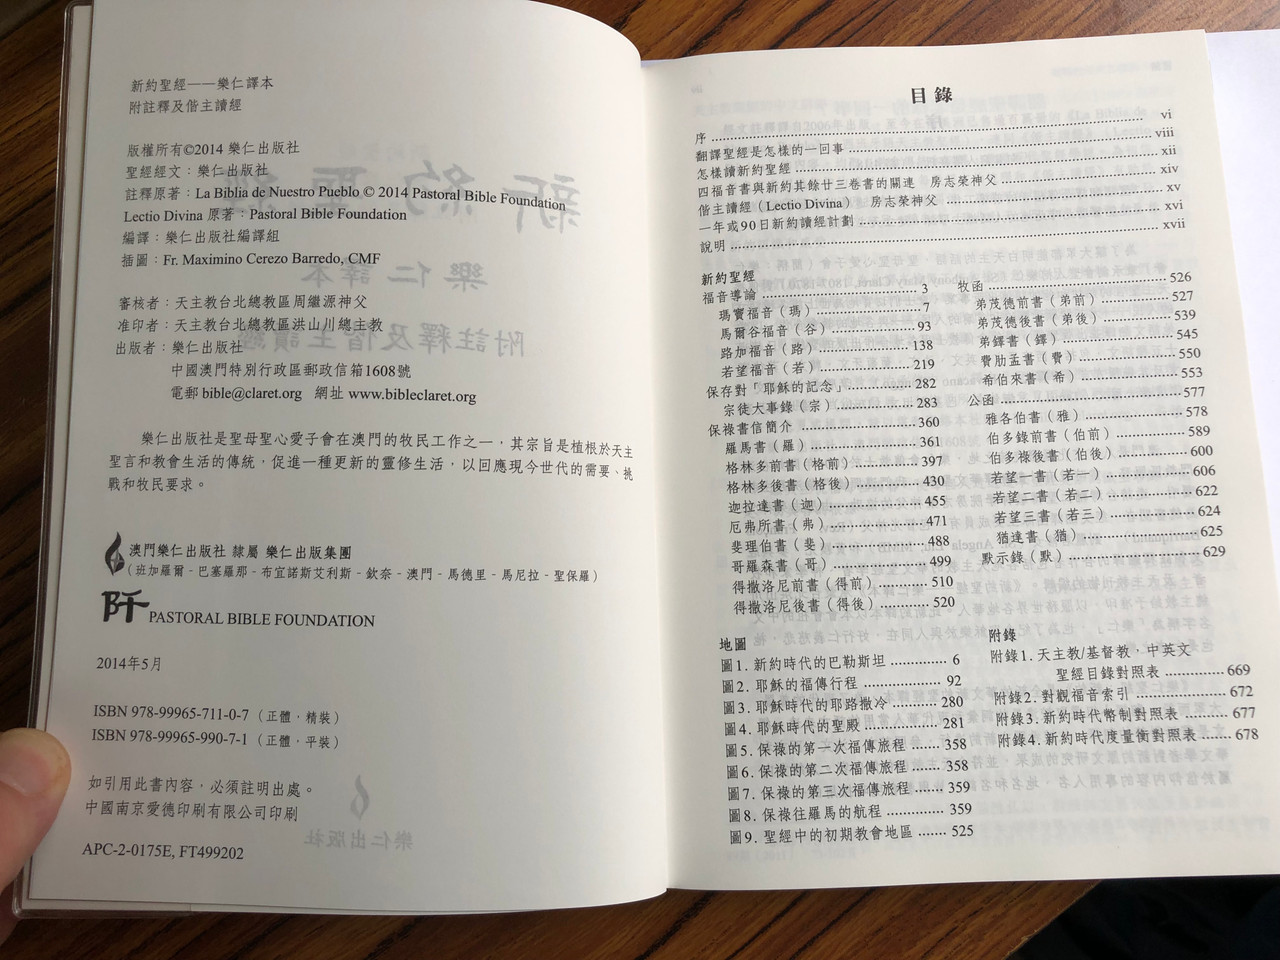 新約聖經——樂仁譯本
附註釋及偕主讀經
版權所有©2014 樂仁出版社
聖經經文：樂仁出版社
註釋原著：La Biblia de Nuestro Pueblo © 2014 Pastoral Bible Foundation
Lectio Divina 原著：Pastoral Bible Foundation
編譯：樂仁出版社編譯組
插圖：Fr. Maximino Cerezo Barredo, CMF
審核者：天主教台北總教區周繼源神父
准印者：天主教台北總教區洪山川總主教
出版者：樂仁出版社
中國澳門特別行政區郵政信箱1608號
電郵 bible@claret.org　網址 www.bibleclaret.org
樂仁出版社是聖母聖心愛子會在澳門的牧民工作之一，其宗旨是植根於天主
聖言和教會生活的傳統，促進一種更新的靈修生活，以回應現今世代的需要、挑
戰和牧民要求。
澳門樂仁出版社 隸屬 樂仁出版集團
（班加羅爾－巴塞羅那－布宜諾斯艾利斯－欽奈－澳門－馬德里－馬尼拉－聖保羅）
PASTORAL BIBLE FOUNDATION
2014年5月
ISBN 978-99965-711-0-7（正體，精裝）
ISBN 978-99965-990-7-1（正體，平裝）
如引用此書內容，必須註明出處。
中國南京愛德印刷有限公司印刷
APC-2-0175E, FT499202
目錄
序 ........ vi
翻譯聖經是怎樣的一回事 ........ viii
怎樣讀新約聖經 ........ xii
四福音書與新約其餘廿三卷書的關連　房志榮神父 ........ xiv
偕主讀經（Lectio Divina）　房志榮神父 ........ xv
一年或90日新約讀經計劃 ........ xvi
說明 ........ xvii
新約聖經
福音導論 ........ 3
瑪竇福音（瑪） ........ 7
馬爾谷福音（谷） ........ 93
路加福音（路） ........ 138
若望福音（若） ........ 219
保存對「耶穌的記念」 ........ 282
宗徒大事錄（宗） ........ 283
保祿書信簡介 ........ 360
羅馬書（羅） ........ 361
格林多前書（格前） ........ 397
格林多後書（格後） ........ 430
迦拉達書（迦） ........ 455
厄弗所書（弗） ........ 471
斐理伯書（斐） ........ 488
哥羅森書（哥） ........ 499
得撒洛尼前書（得前） ........ 510
得撒洛尼後書（得後） ........ 520
牧函 ........ 526
弟茂德前書（弟前） ........ 527
弟茂德後書（弟後） ........ 539
弟鐸書（鐸） ........ 545
費肋孟書（費） ........ 550
希伯來書（希） ........ 553
公函 ........ 577
雅各伯書（雅） ........ 578
伯多錄前書（伯前） ........ 589
伯多祿後書（伯後） ........ 600
若望一書（若一） ........ 606
若望二書（若二） ........ 622
若望三書（若三） ........ 624
猶達書（猶） ........ 625
默示錄（默） ........ 629
地圖
圖1. 新約時代的巴勒斯坦 ........ 6
圖2. 耶穌的福傳行程 ........ 92
圖3. 耶穌時代的耶路撒冷 ........ 280
圖4. 耶穌時代的聖殿 ........ 281
圖5. 保祿的第一次福傳旅程 ........ 358
圖6. 保祿的第二次福傳旅程 ........ 358
圖7. 保祿的第三次福傳旅程 ........ 359
圖8. 保祿往羅馬的航程 ........ 359
圖9. 聖經中的初期教會地區 ........ 525
附錄
附錄1. 天主教/基督教，中英文
聖經目錄對照表 ........ 669
附錄2. 對觀福音索引 ........ 672
附錄3. 新約時代幣制對照表 ........ 677
附錄4. 新約時代度量衡對照表 ........ 678